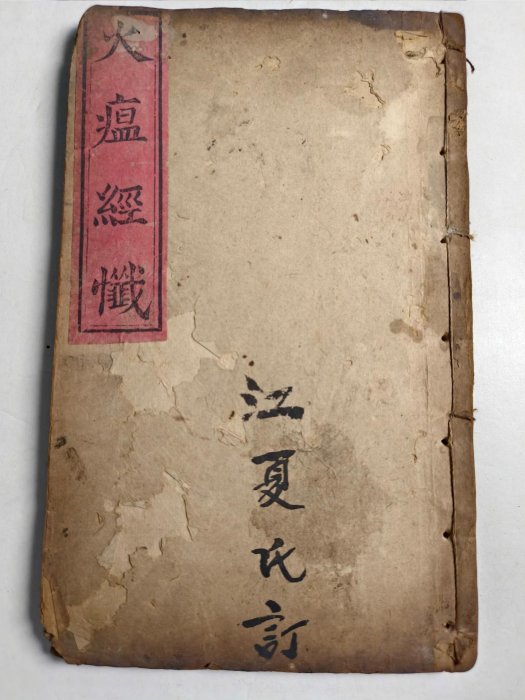 火瘟經懺
江夏氏訂